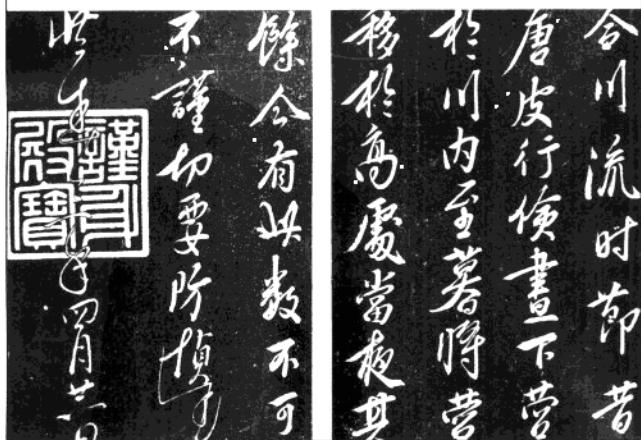 合川流时節昔
唐皮行儉晝下营
於川内至暮將营
移於高處當夜其
餘今有此数不可
不謹切要防
洪武年四月廿日
謹身
殿寶